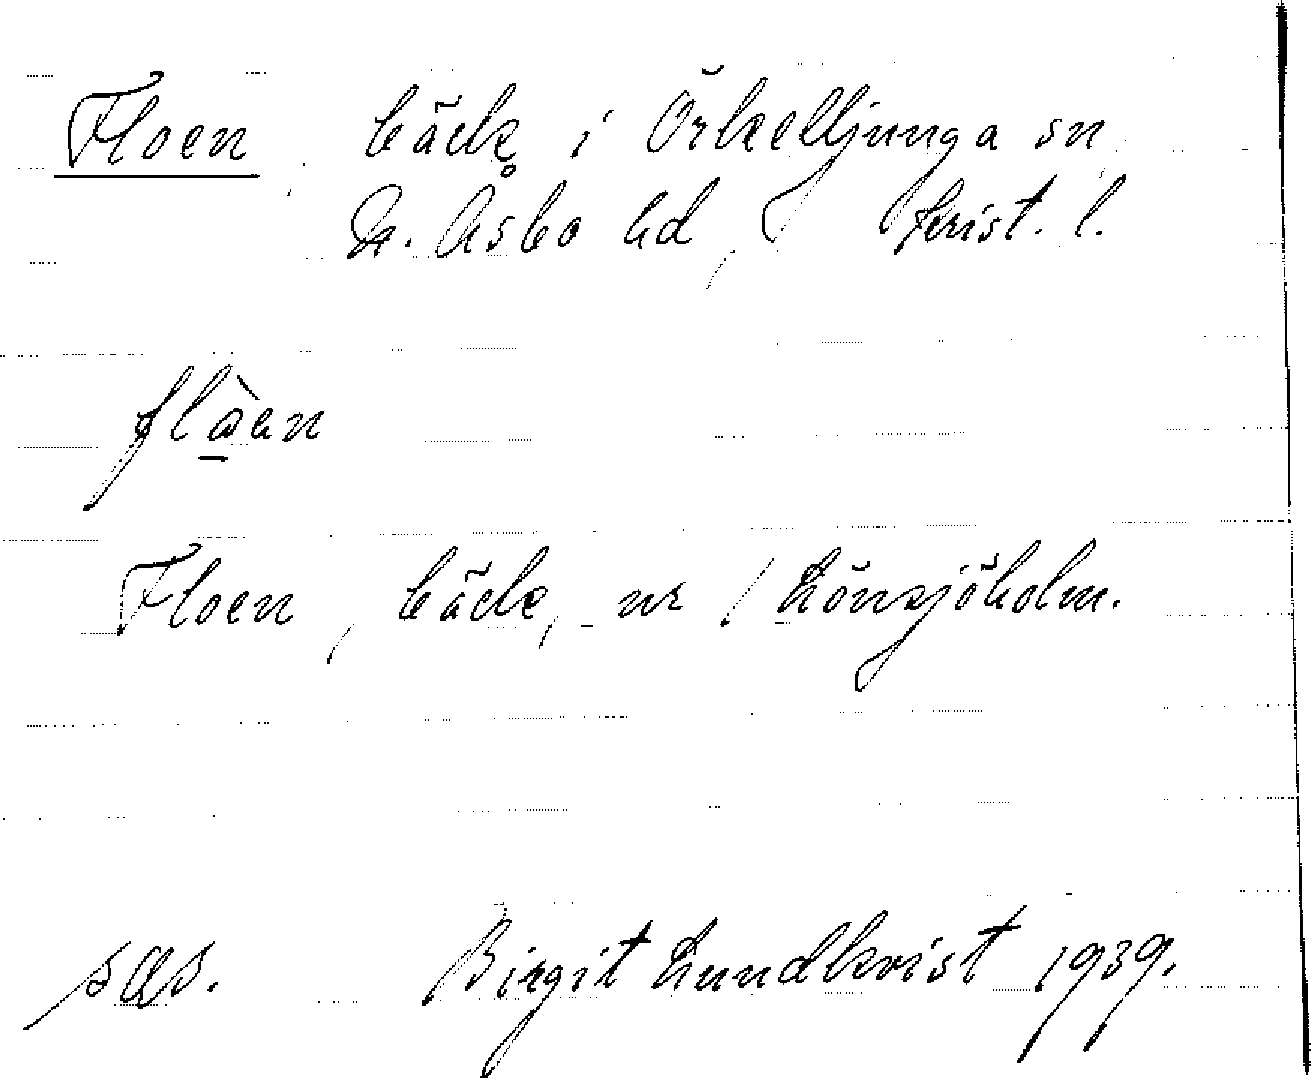 Floen, bäck i Örkelljunga sn
N. Åsbo hd, Krist. l.
flàen
Floen, bäck, nr / Lönsjöholm.
sas. Birgit Lundkvist 1939.